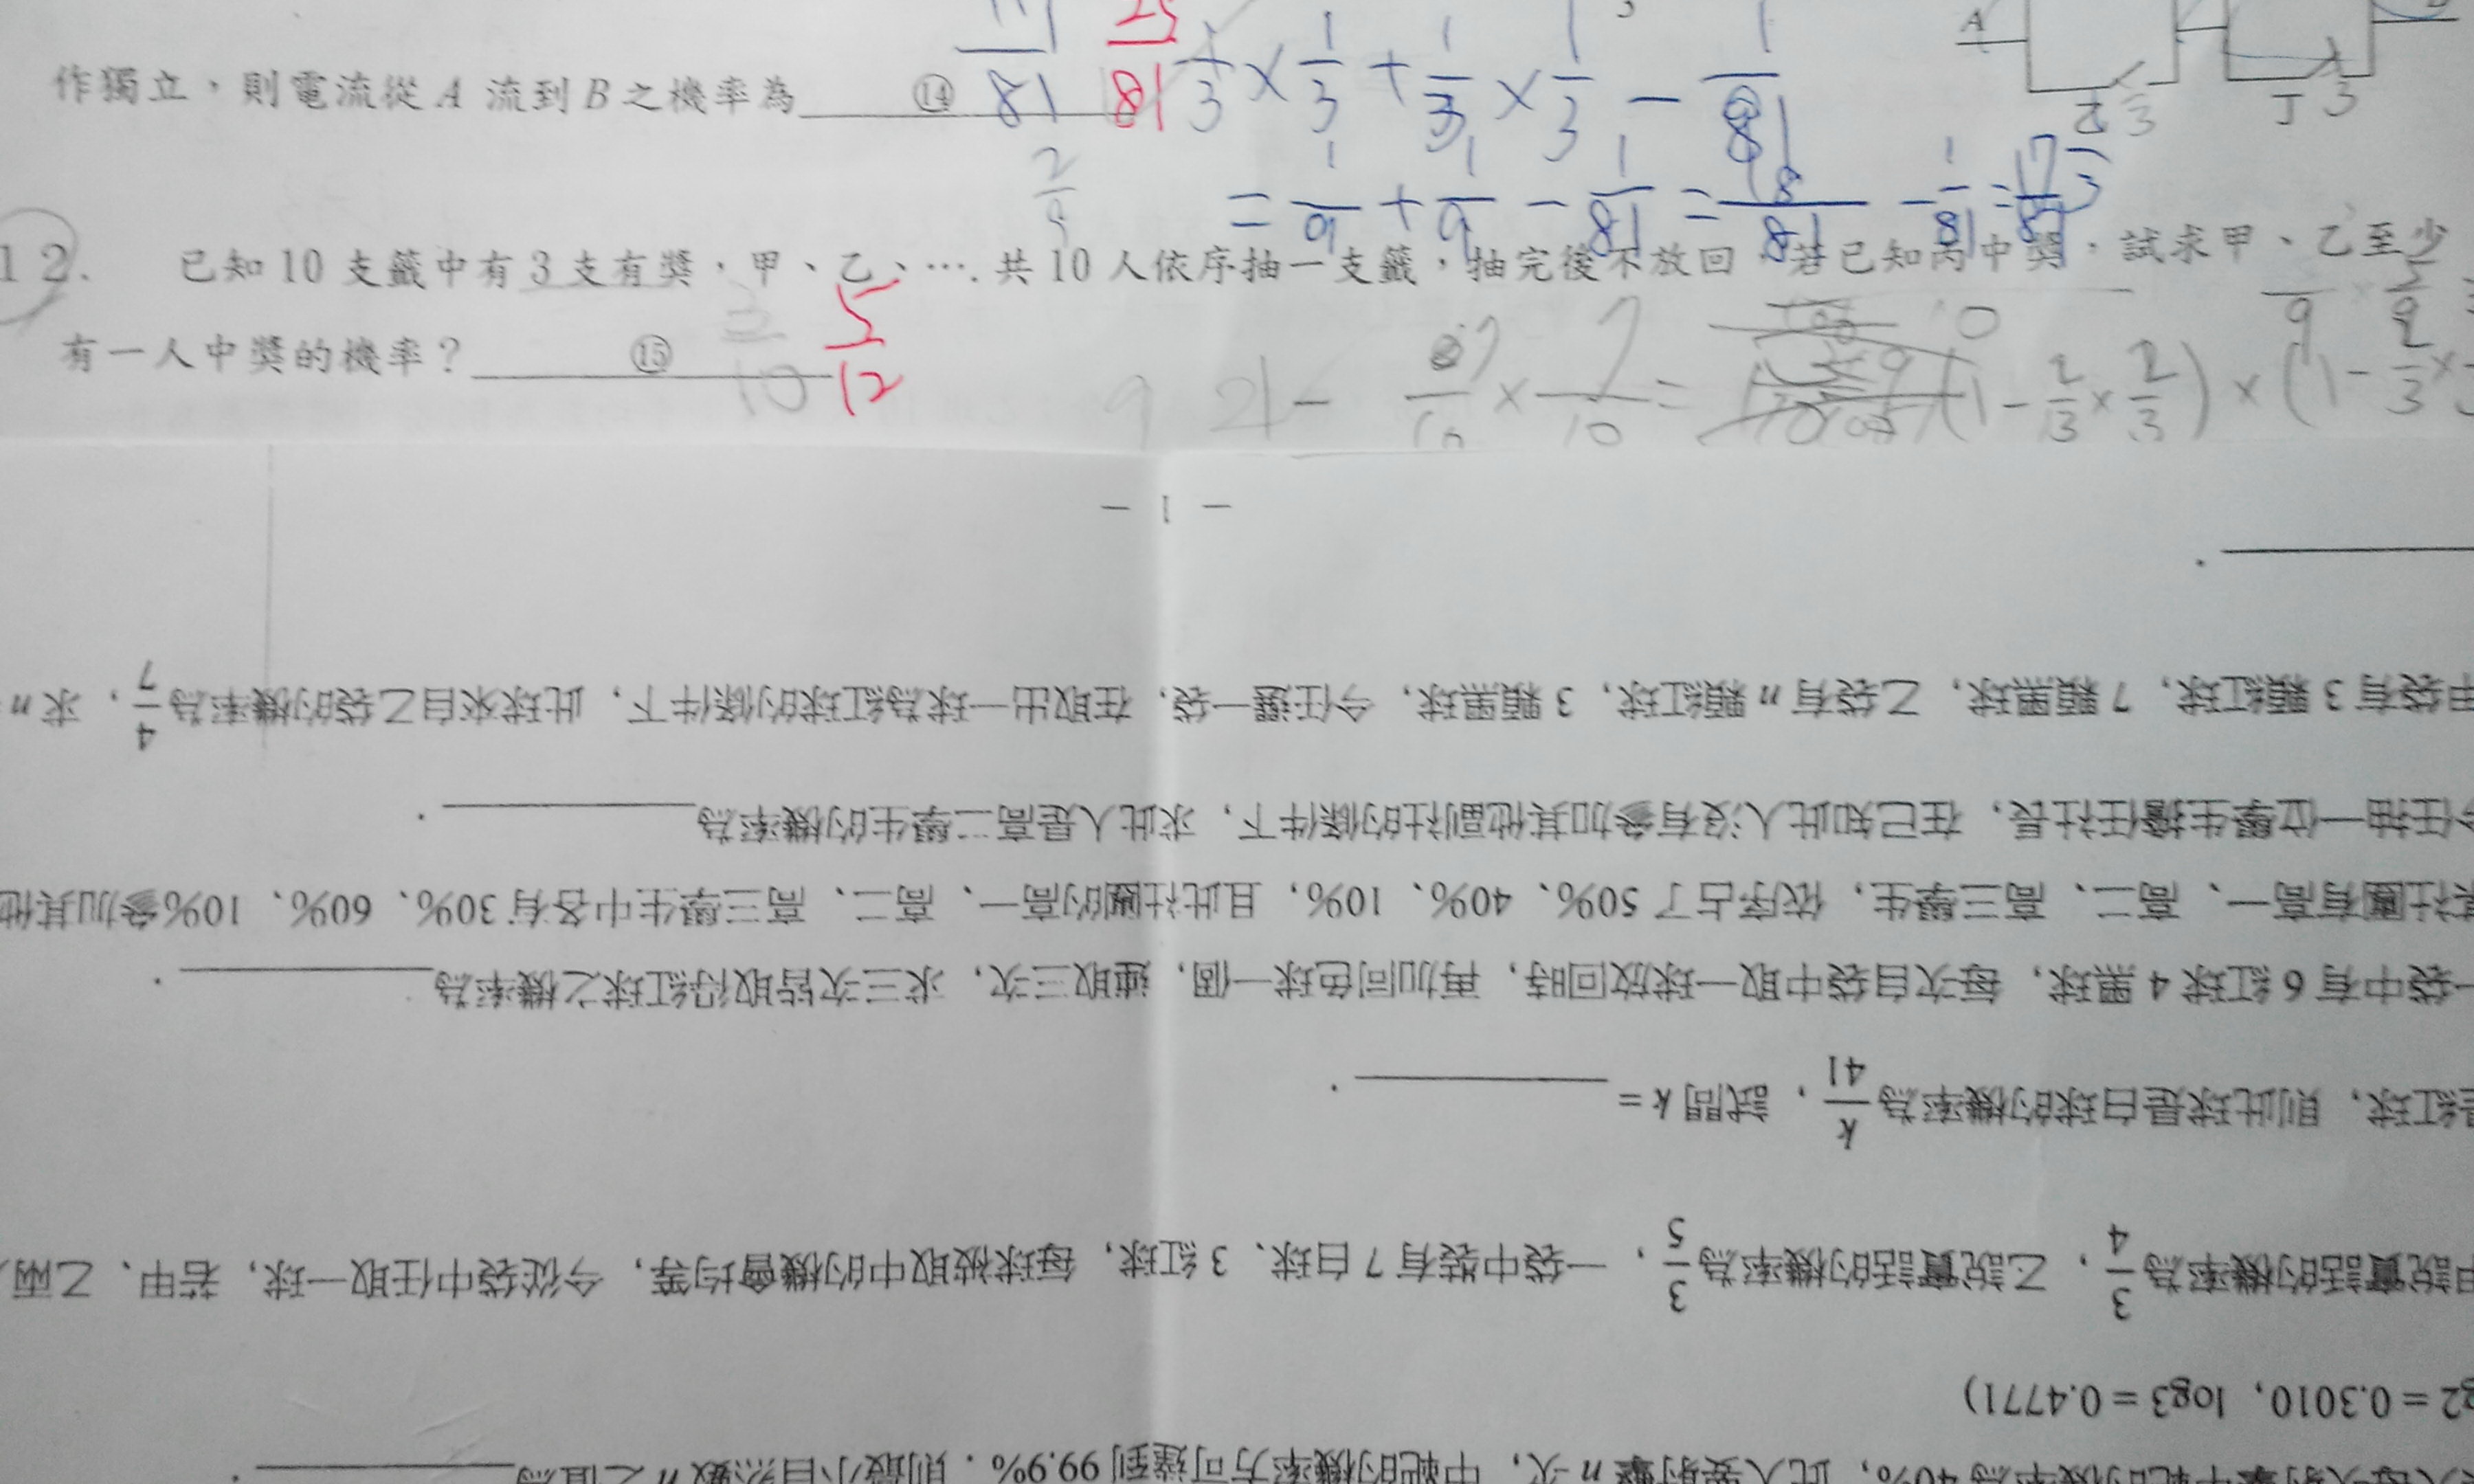 作獨立，則電流從 A 流到 B 之機率為 ⑭ 81 25/81 1/3 × 1/3 + 1/3 × 1/3 − 1/81
A 乙 丁 3
2/9 = 1/9 + 1/9 − 1/81 = 18/81 − 1/81 = 17/81
12. 已知 10 支籤中有 3 支有獎，甲、乙、…. 共 10 人依序抽一支籤，抽完後不放回，若已知丙中獎，試求甲、乙至少
有一人中獎的機率？ ⑮ 3/10 5/12
7/10 × 7/10 = (1 − 2/3 × 2/3) × (1 − 2/3 ×
− 1 −
甲袋有 3 顆紅球，7 顆黑球，乙袋有 n 顆紅球，3 顆黑球，今任選一袋，在取出一球為紅球的條件下，此球來自乙袋的機率為 4/7，求 n
今任抽一位學生擔任社長，在已知此人沒有參加其他副社的條件下，求此人是高二學生的機率為．
某社團有高一、高二、高三學生，依序占了 50%、40%、10%，且此社團的高一、高二、高三學生中各有 30%、60%、10%參加其他
一袋中有 6 紅球 4 黑球，每次自袋中取一球放回時，再加同色球一個，連取三次，求三次皆取得紅球之機率為．
是紅球，則此球是白球的機率為 k/41，試問 k =．
甲說實話的機率為 3/4，乙說實話的機率為 3/5，一袋中裝有 7 白球、3 紅球，每球被取中的機會均等，今從袋中任取一球，若甲、乙兩
g2 = 0.3010，log3 = 0.4771)
40%，此人要射擊 n 次，中靶的機率方可達到 99.9%．則最小自然數 n 之值為．